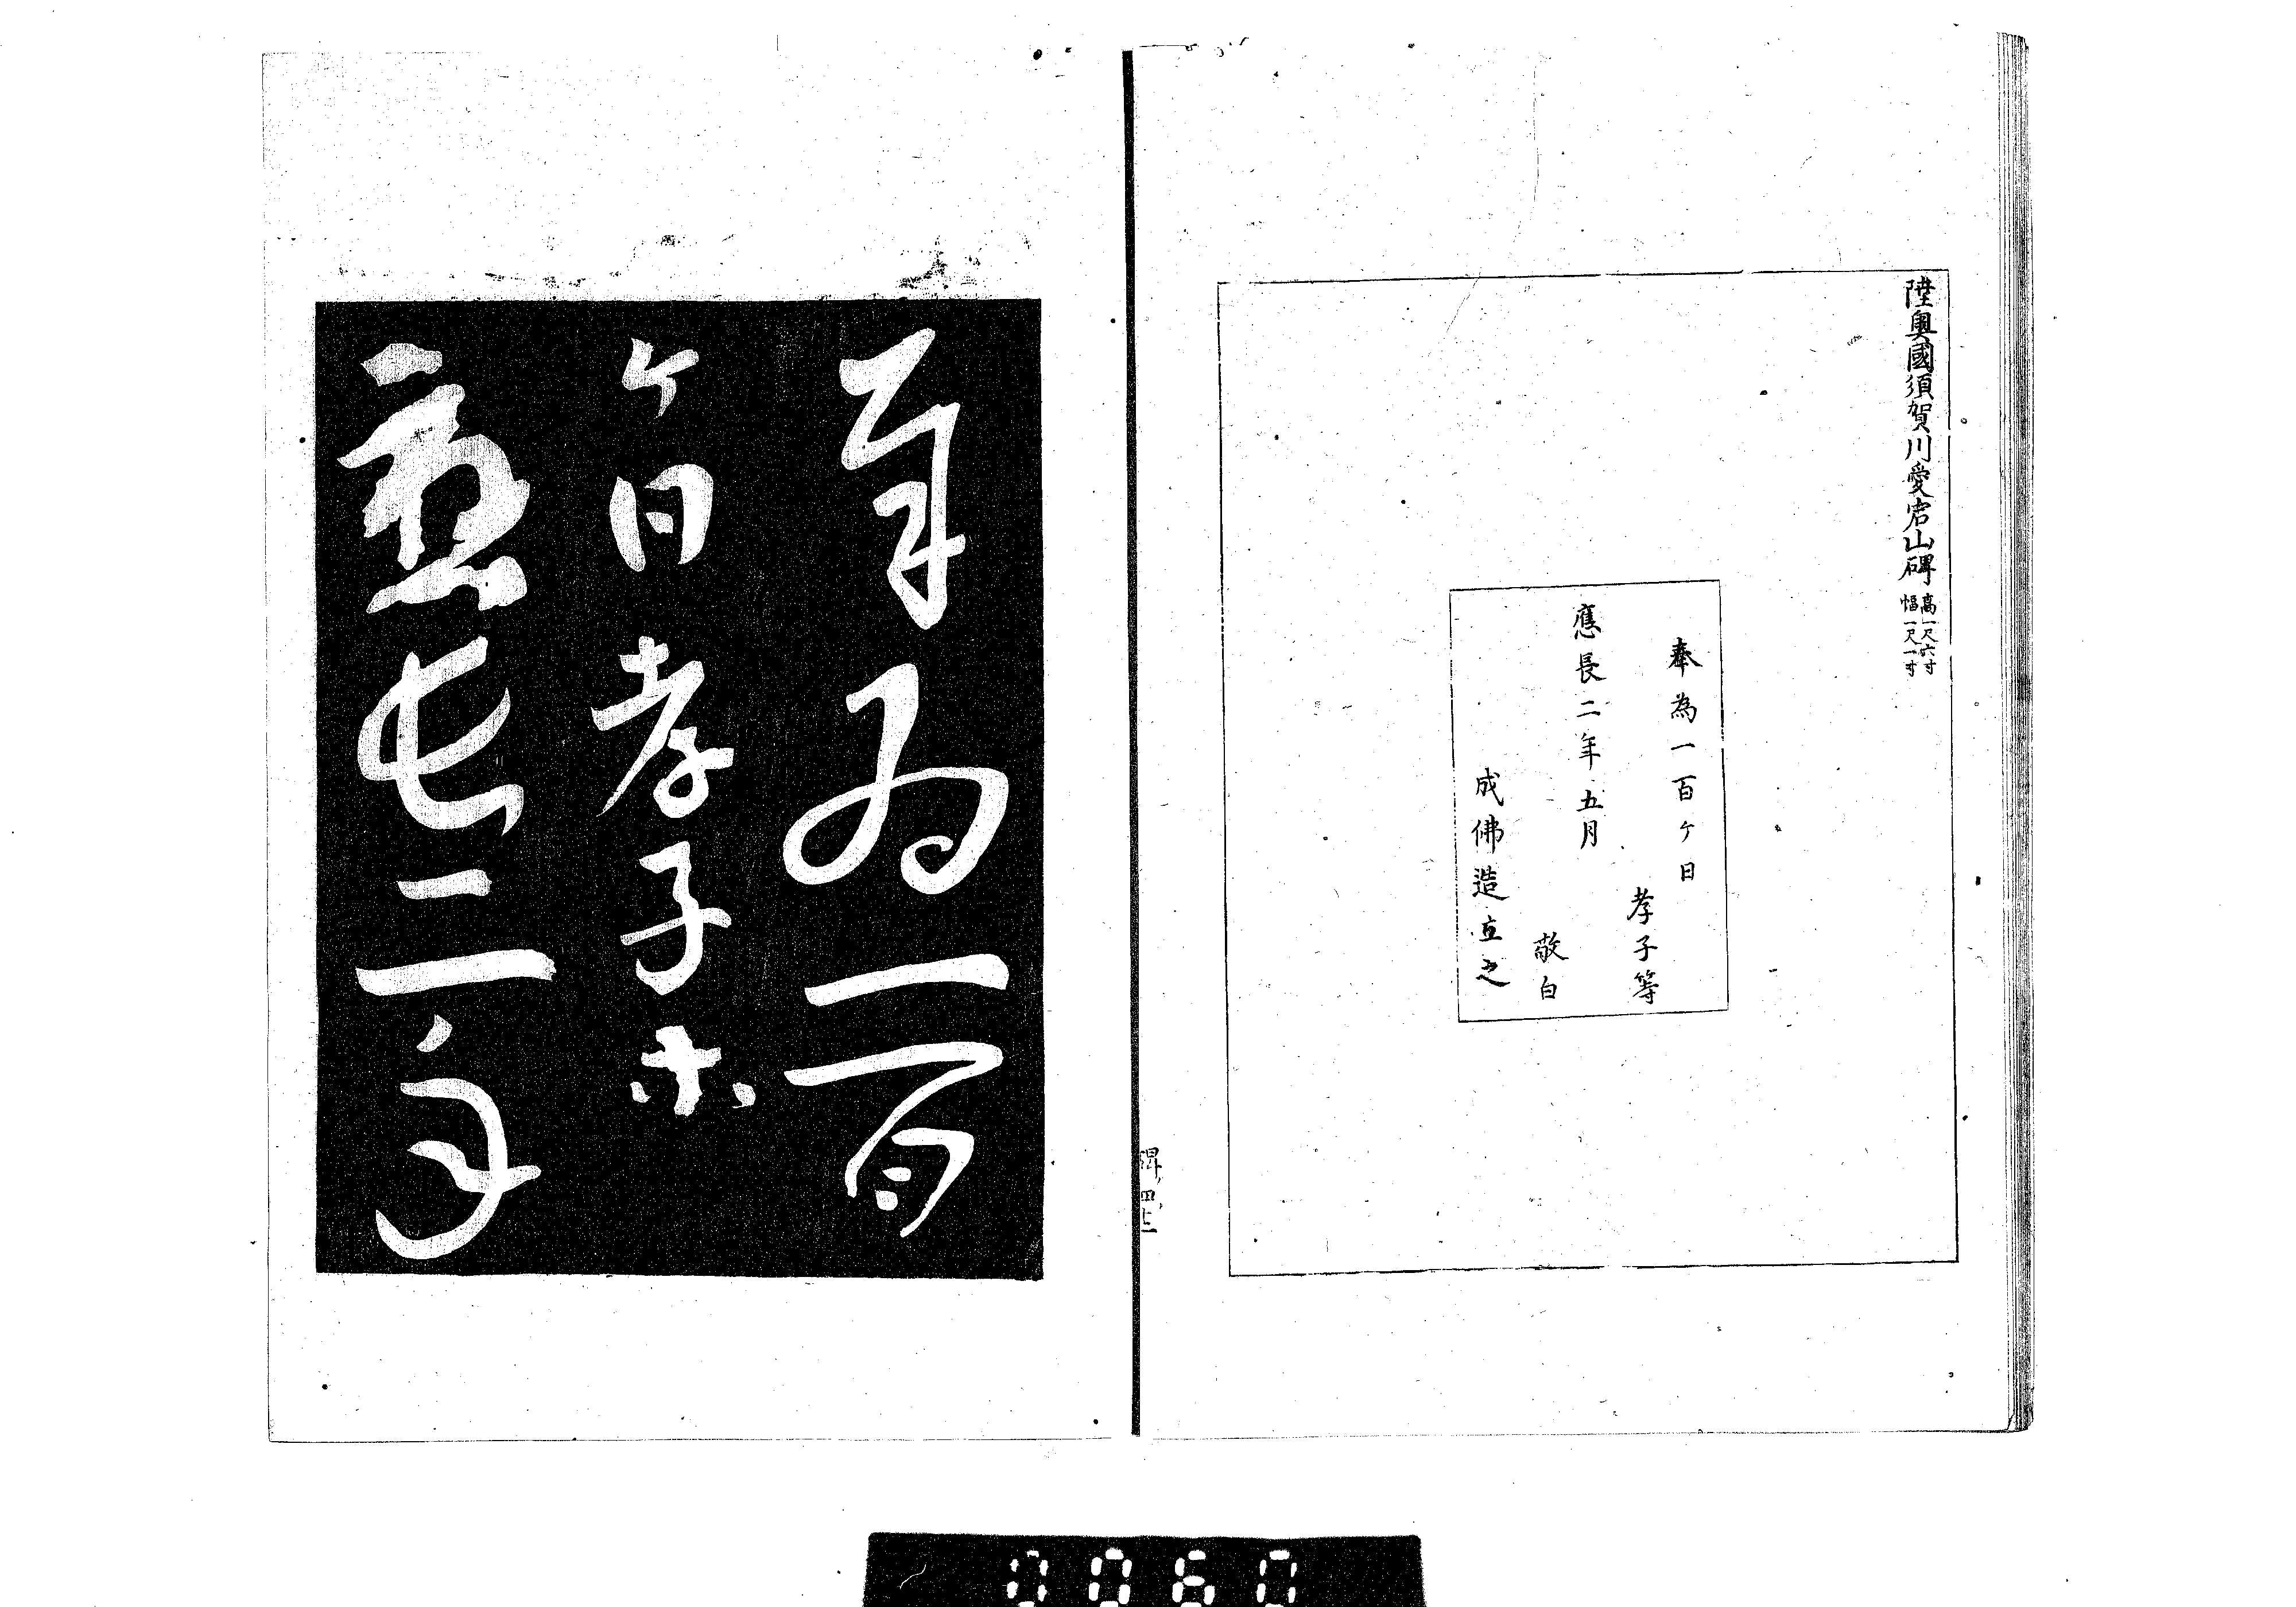 陸奥國須賀川愛宕山碑 高一尺六寸 幅一尺一寸
奉為一百ケ日
孝子等
應長二年五月
敬白
成佛造立之
碑四上
奉為一百
ケ日孝子ホ
應長二年
0060